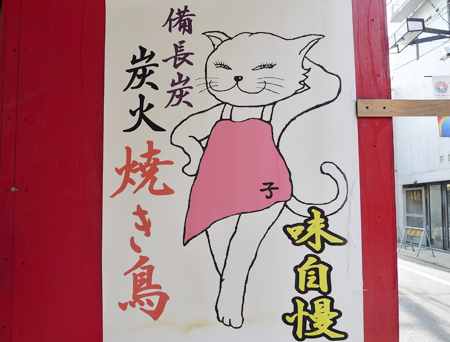 備長炭
炭火
焼き鳥
子
味自慢